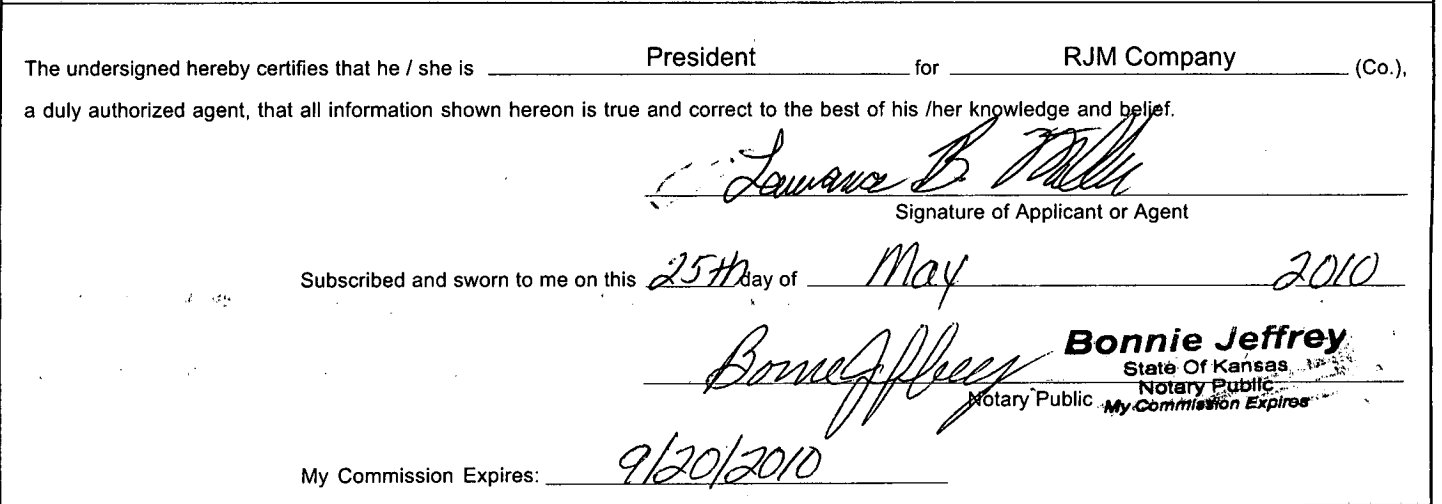 The undersigned hereby certifies that he / she is President for RJM Company (Co.),
a duly authorized agent, that all information shown hereon is true and correct to the best of his /her knowledge and belief.
Lawrance B. Miller
Signature of Applicant or Agent
Subscribed and sworn to me on this 25th day of May 2010
Bonnie Jeffrey
Bonnie Jeffrey
State Of Kansas
Notary Public
Notary Public My Commission Expires
My Commission Expires: 9/20/2010